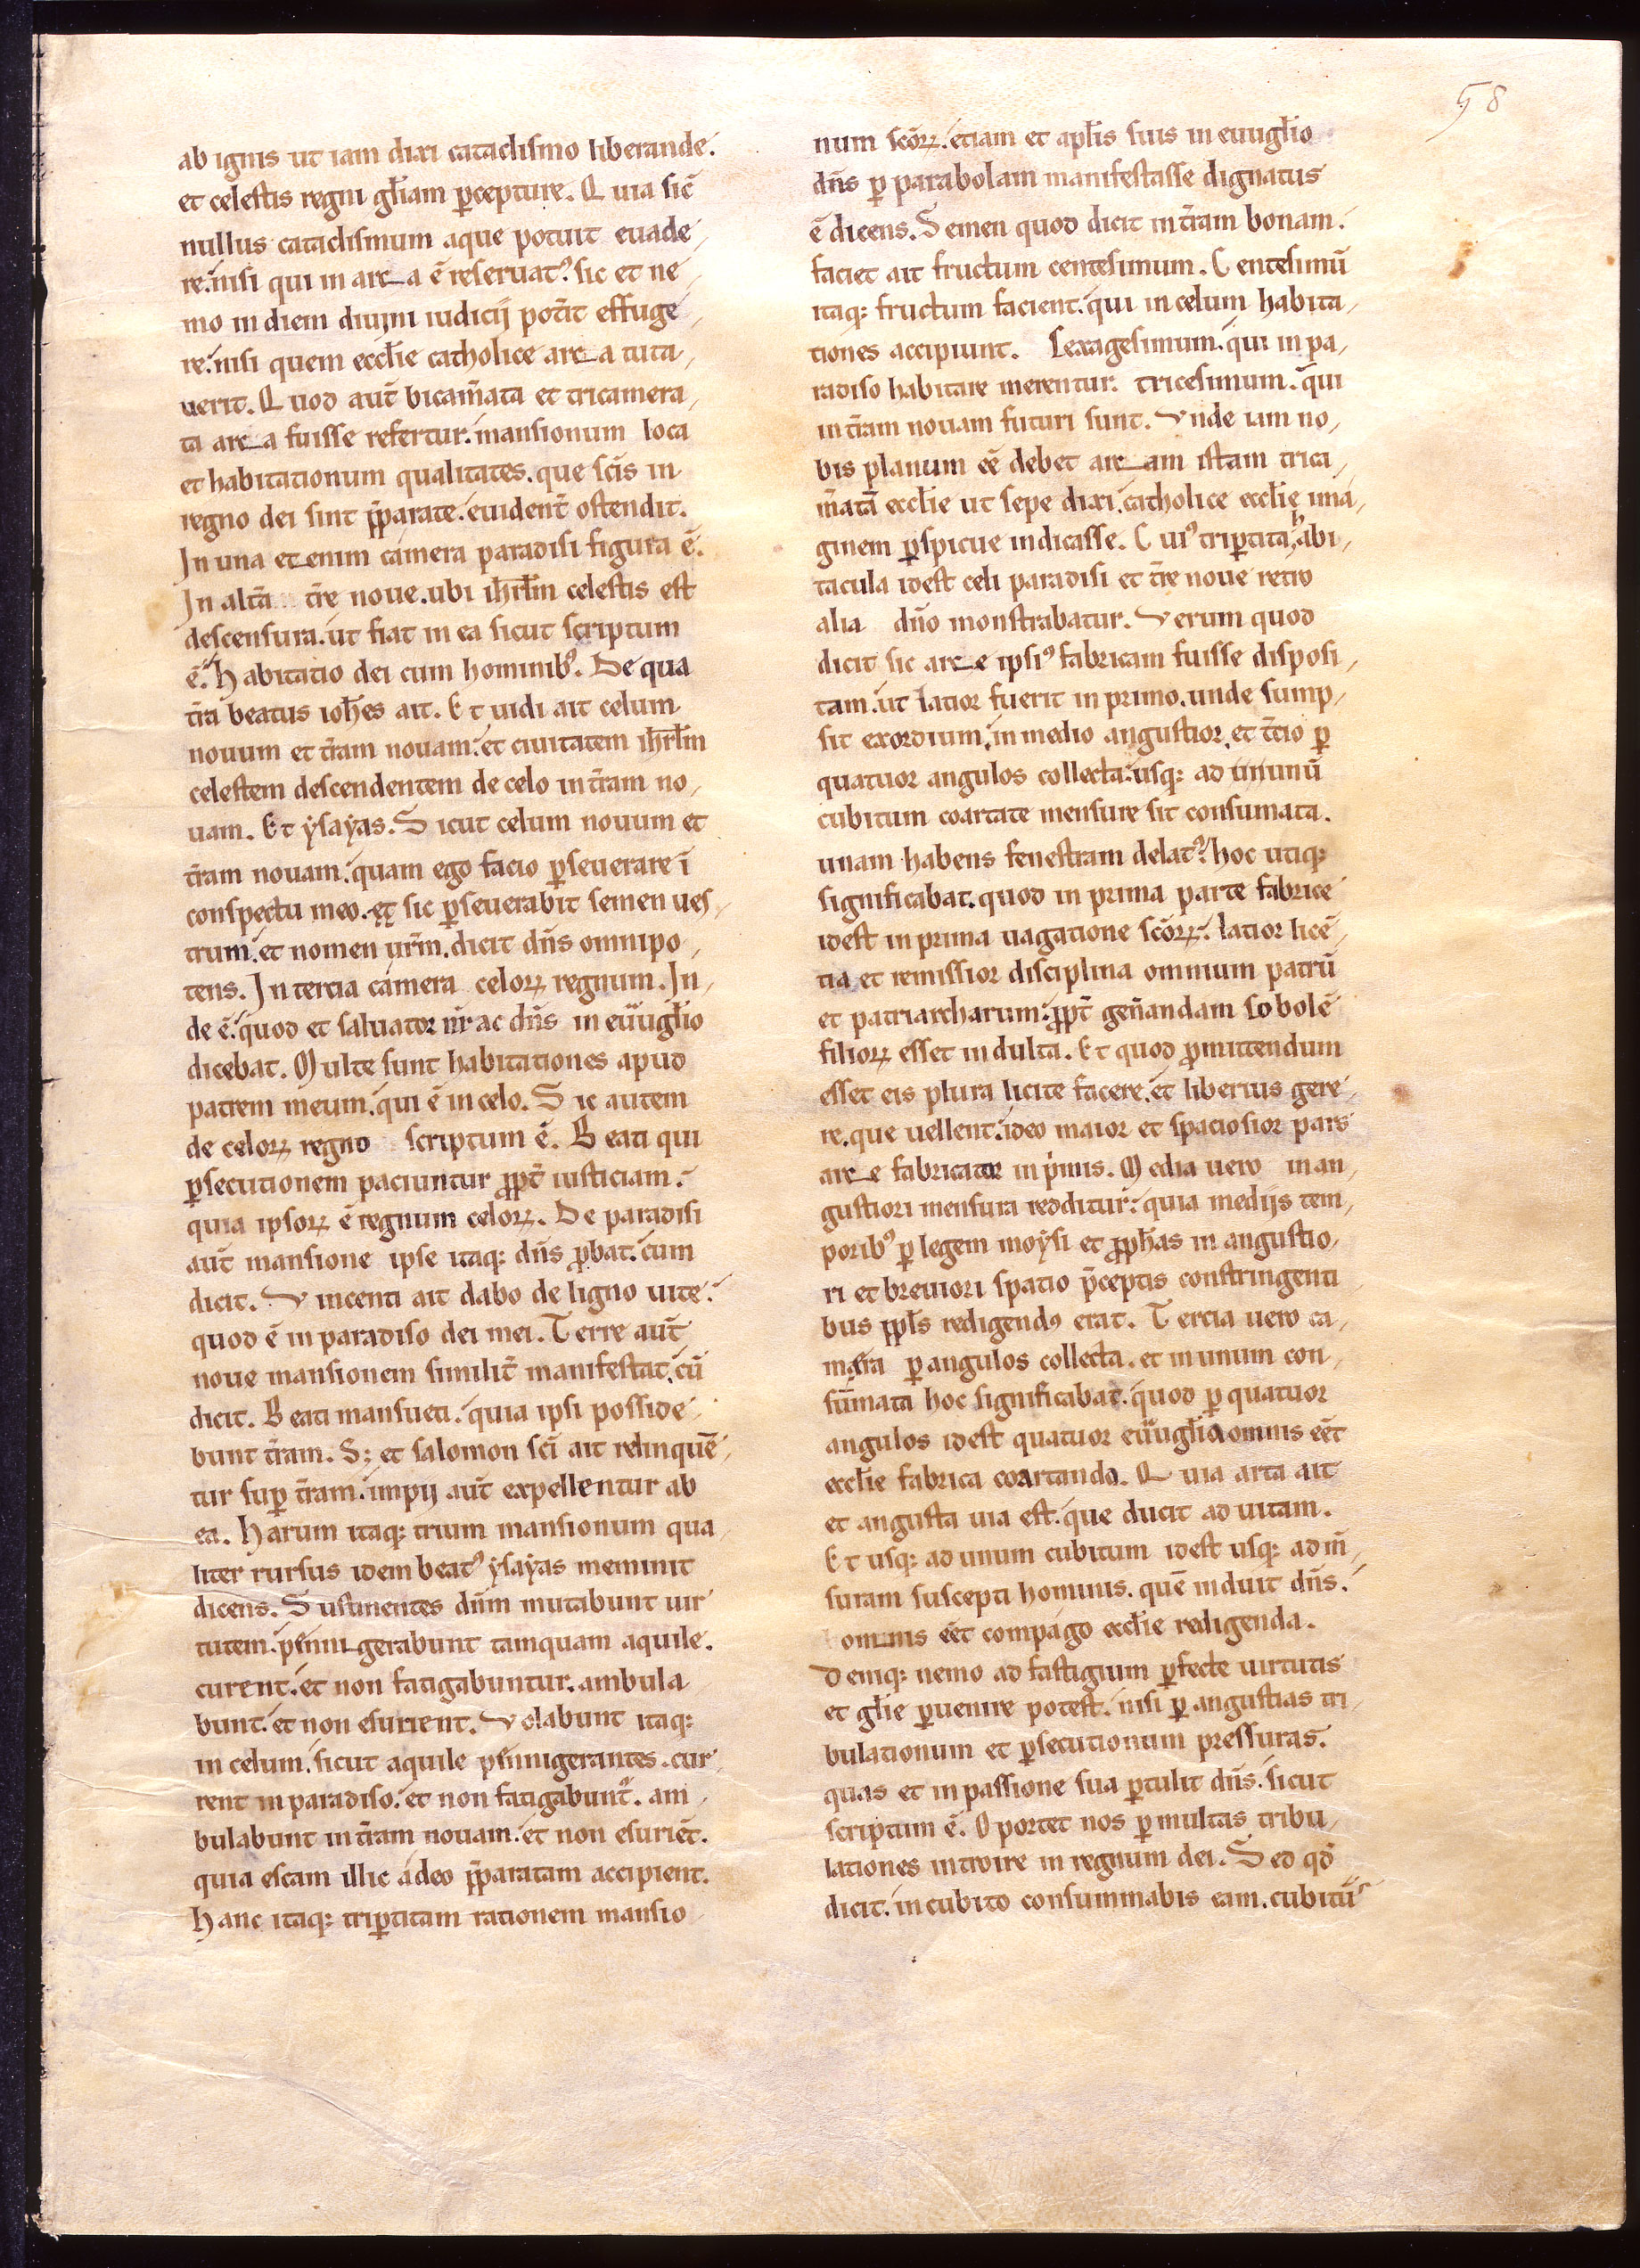 58
ab ignis ut iam dixi cataclismo liberande.
et celestis regni gl̄iam ꝑcepture. Quia sic̄
nullus cataclismum aque potuit euade,
re. nisi qui in arca ē reseruatꝰ sic et ne,
mo in diem diuini iudicij pot̄it effuge,
re. nisi quem eccl̄ie catholice arca tuta,
uerit. Quod aut̄ bicam̄ata et tricamera,
ta arca fuisse refertur. mansionum loca
et habitationum qualitates. que sc̄is in
regno dei sint p̄parate. euident̄ ostendit.
In una etenim camera paradisi figura ē.
In alt̄a t̄re noue. ubi ih̄rl̄m celestis est
descensura. ut fiat in ea sicut scriptum
ē. habitatio dei cum hominibꝰ. De qua
t̄ra beatus ioh̄es ait. Et uidi ait celum
nouum et t̄ram nouam. et ciuitatem ih̄rl̄m
celestem descendentem de celo in t̄ram no,
uam. Et ysayas. Sicut celum nouum et
t̄ram nouam. quam ego facio ꝑseuerare ī
conspectu meo. et sic ꝑseuerabit semen ues,
trum. et nomen ur̄m. dicit dn̄s omnipo,
tens. In tercia camera celoꝝ regnum. In,
de ē. quod et saluator nr̄ ac dn̄s in euūgl̄io
dicebat. Multe sunt habitationes apud
patrem meum. qui ē in celo. Sic autem
de celoꝝ regno scriptum ē. Beati qui
ꝑsecutionem paciuntur ꝓpt̄ iusticiam.
quia ipsoꝝ ē regnum celoꝝ. De paradisi
aut̄ mansione ipse itaq; dn̄s ꝓbat. cum
dicit. Vincenti ait dabo de ligno uite.
quod ē in paradiso dei mei. Terre aut̄
noue mansionem similit̄ manifestat. cū
dicit. Beati mansueti. quia ipsi posside,
bunt t̄ram. S; et salomon sc̄i ait relinquē,
tur suꝑ t̄ram. impij aut̄ expellentur ab
ea. harum itaq; trium mansionum qua,
liter rursus idem beatꝰ ysayas meminit
dicens. Sustinentes dn̄m mutabunt uir
tutem. penni gerabunt tamquam aquile.
curent. et non fatigabuntur. ambula,
bunt. et non esurient. Volabunt itaq;
in celum. sicut aquile pennigerantes. cur,
rent in paradiso. et non fatigabunt̄. am,
bulabunt in t̄ram nouam. et non esuriēt.
quia escam illic a deo p̄paratam accipient.
hanc itaq; triꝑtitam rationem mansio,
num sc̄oꝝ. etiam et apl̄is suis in euugl̄io
dn̄s ꝑ parabolam manifestasse dignatus
ē dicens. Semen quod dicit in t̄ram bonam.
faciet ait fructum centesimum. Centesimū
itaq; fructum facient. qui in celum habita,
tiones accipiunt. Sexagesimum. qui in pa,
radiso habitare merentur. tricesimum. qui
in t̄ram nouam futuri sunt. Vnde iam no,
bis planum eē debet arcam istam trica,
m̄atā eccl̄ie ut sepe dixi. catholice eccl̄ie ima,
ginem ꝑspicue indicasse. Cuiꝰ triꝑtita habi,
tacula idest celi paradisi et t̄re noue retro
alia dn̄o monstrabatur. Verum quod
dicit sic arce ipsiꝰ fabricam fuisse disposi,
tam. ut latior fuerit in primo. unde sump,
sit exordium. in medio angustior. et t̄cio ꝑ
quatuor angulos collecta. usq; ad ununū
cubitum coartate mensure sit consumata.
unam habens fenestram delatꝰ. hoc utiq;
significabat. quod in prima parte fabrice
idest in prima uagatione sc̄oꝝ. latior licē,
tia et remissior disciplina omnium patrū
et patriarcharum. ꝓpt̄ gen̄andam sobolē
filioꝝ esset indulta. Et quod ꝓmittendum
esset eis plura licite facere. et liberius gere,
re. que uellent. ideo maior et spaciosior pars
arce fabricatur in pimis. Media uero in an,
gustiori mensura redditur. quia medijs tem,
poribꝰ ꝑ legem moysi et ꝓph̄as in angustio,
ri et breuiori spatio p̄ceptis constringenti,
bus ppl̄s redigendꝰ erat. Tercia uero ca,
mara ꝑ angulos collecta. et in unum con,
sūmata hoc significabat. quod ꝑ quatuor
angulos idest quatuor euūgl̄ia omnis eēt
eccl̄ie fabrica coartanda. Quia arta ait
et angusta uia est. que ducit ad uitam.
Et usq; ad unum cubitum idest usq; ad m̄,
suram suscepti hominis. quē induit dn̄s.
omnis eēt compago eccl̄ie redigenda.
Deniq; nemo ad fastigium ꝑfecte uirtutis
et gl̄ie ꝑuenire potest. nisi ꝑ angustias tri,
bulationum et ꝑsecutionum pressuras.
quas et in passione sua ꝑtulit dn̄s. sicut
scriptum ē. Oportet nos ꝑ multas tribu,
lationes introire in regnum dei. Sed qd̄
dicit. in cubito consummabis eam. cubitū